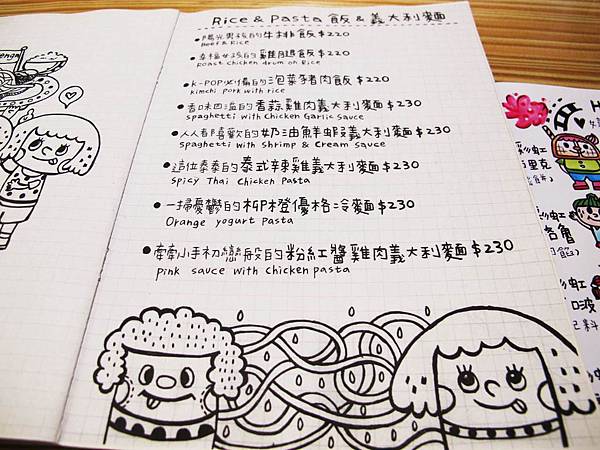 Rice & Pasta 飯 & 義大利麵
•陽光男孩的牛排飯$220
Beef & Rice
•幸福女孩的雞腿飯$220
Roast chicken drum on Rice
•K-POP必備的泡菜豬肉飯 $220
kimchi pork with rice
•香味四溢的香蒜雞肉義大利麵$230
spaghetti with Chicken Garlic Sauce
•人人都喜歡的奶油鮮蝦義大利麵$230
spaghetti with Shrimp & Cream Sauce
•這位泰泰的泰式辣雞義大利麵$230
Spicy Thai Chicken Pasta
•一掃憂鬱的柳橙優格冷麵$230
Orange yogurt Pasta
•牽牽小手初戀般的粉紅醬雞肉義大利麵$230
pink sauce with chicken pasta
彩虹
里克
彩虹
洛魯
彩虹
口波